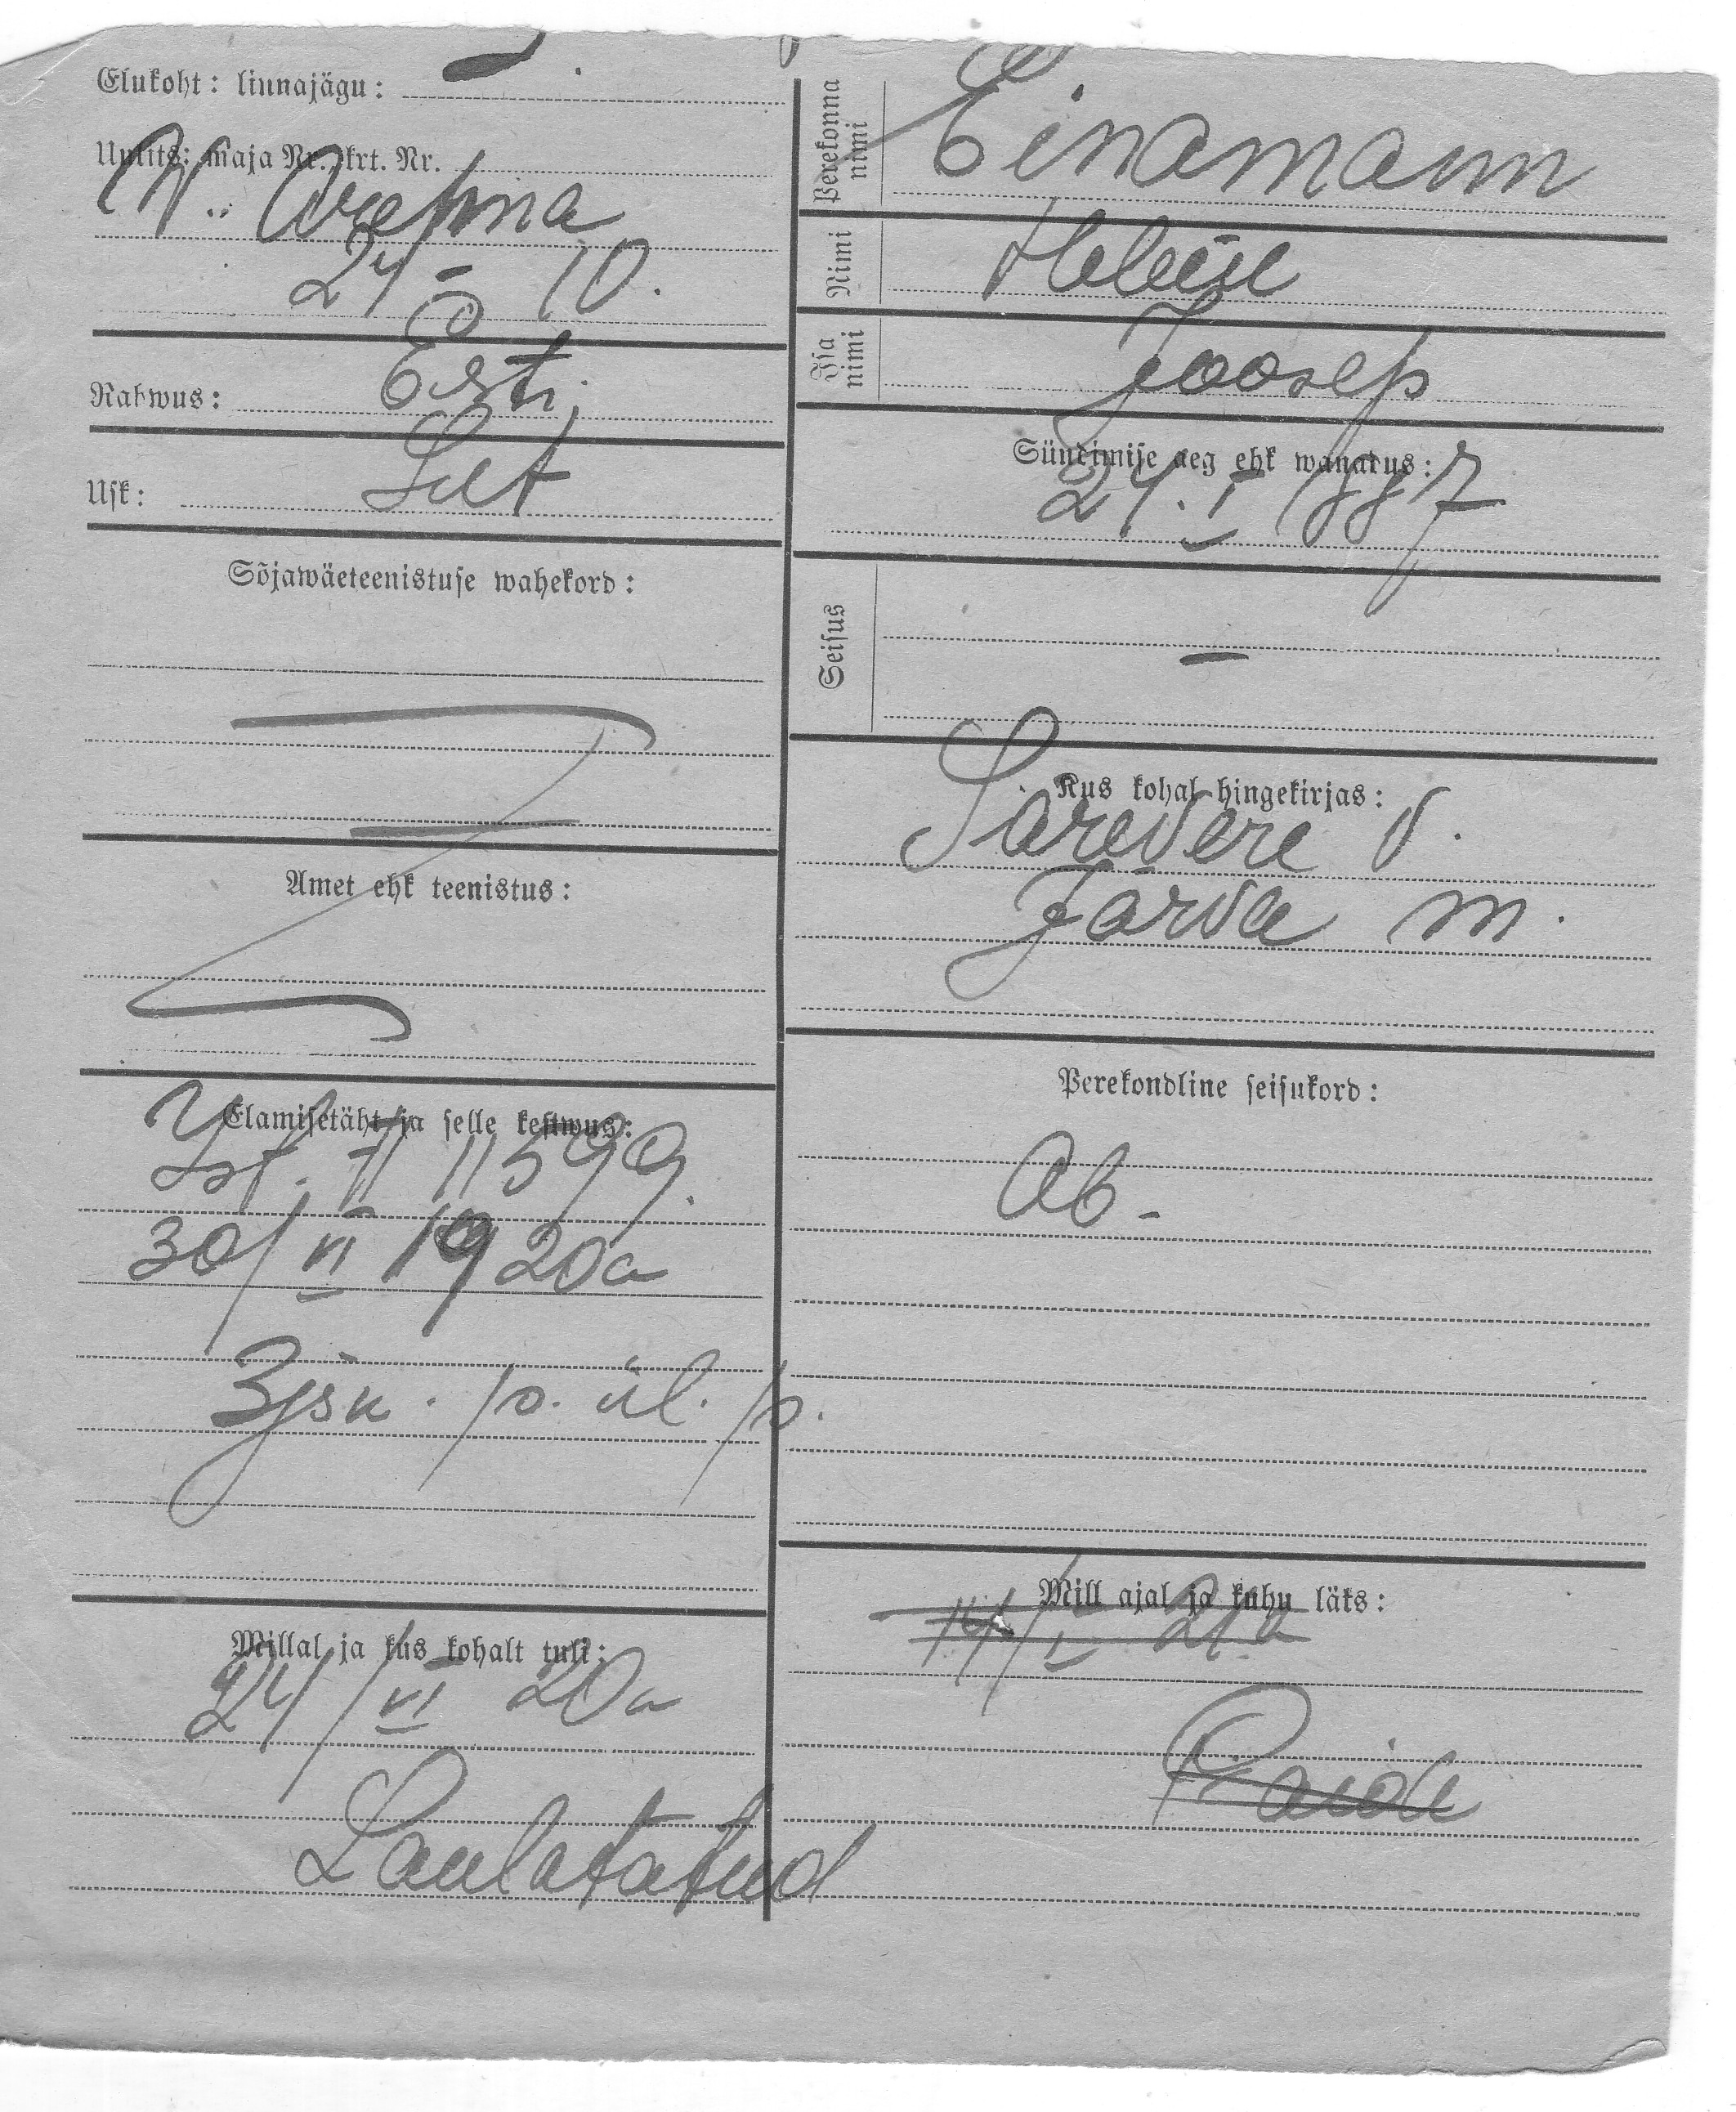 Elukoht: linnajägu:
Uulits: maja Nr. krt. Nr.
24 - 10.
Rahwus: Esti
Usk: Lut
Sõjawäeteenistuse wahekord:
Amet ehk teenistus:
Elamisetäht ja selle kestwus:
11599.
30/VI 1920a
p. ül. p.
Millal ja kus kohalt tuli:
24/VI 20a
Laulatatud
Perekonna nimi Einamann
Nimi Helene
Isa nimi Joosep
Sündimise aeg ehk wanadus:
24.I 1887
Seisus -
Kus kohal hingekirjas:
Särevere v.
Järva m.
Perekondline seisukord:
Ab-
Mill ajal ja kuhu läks:
14/I 21a
Paide